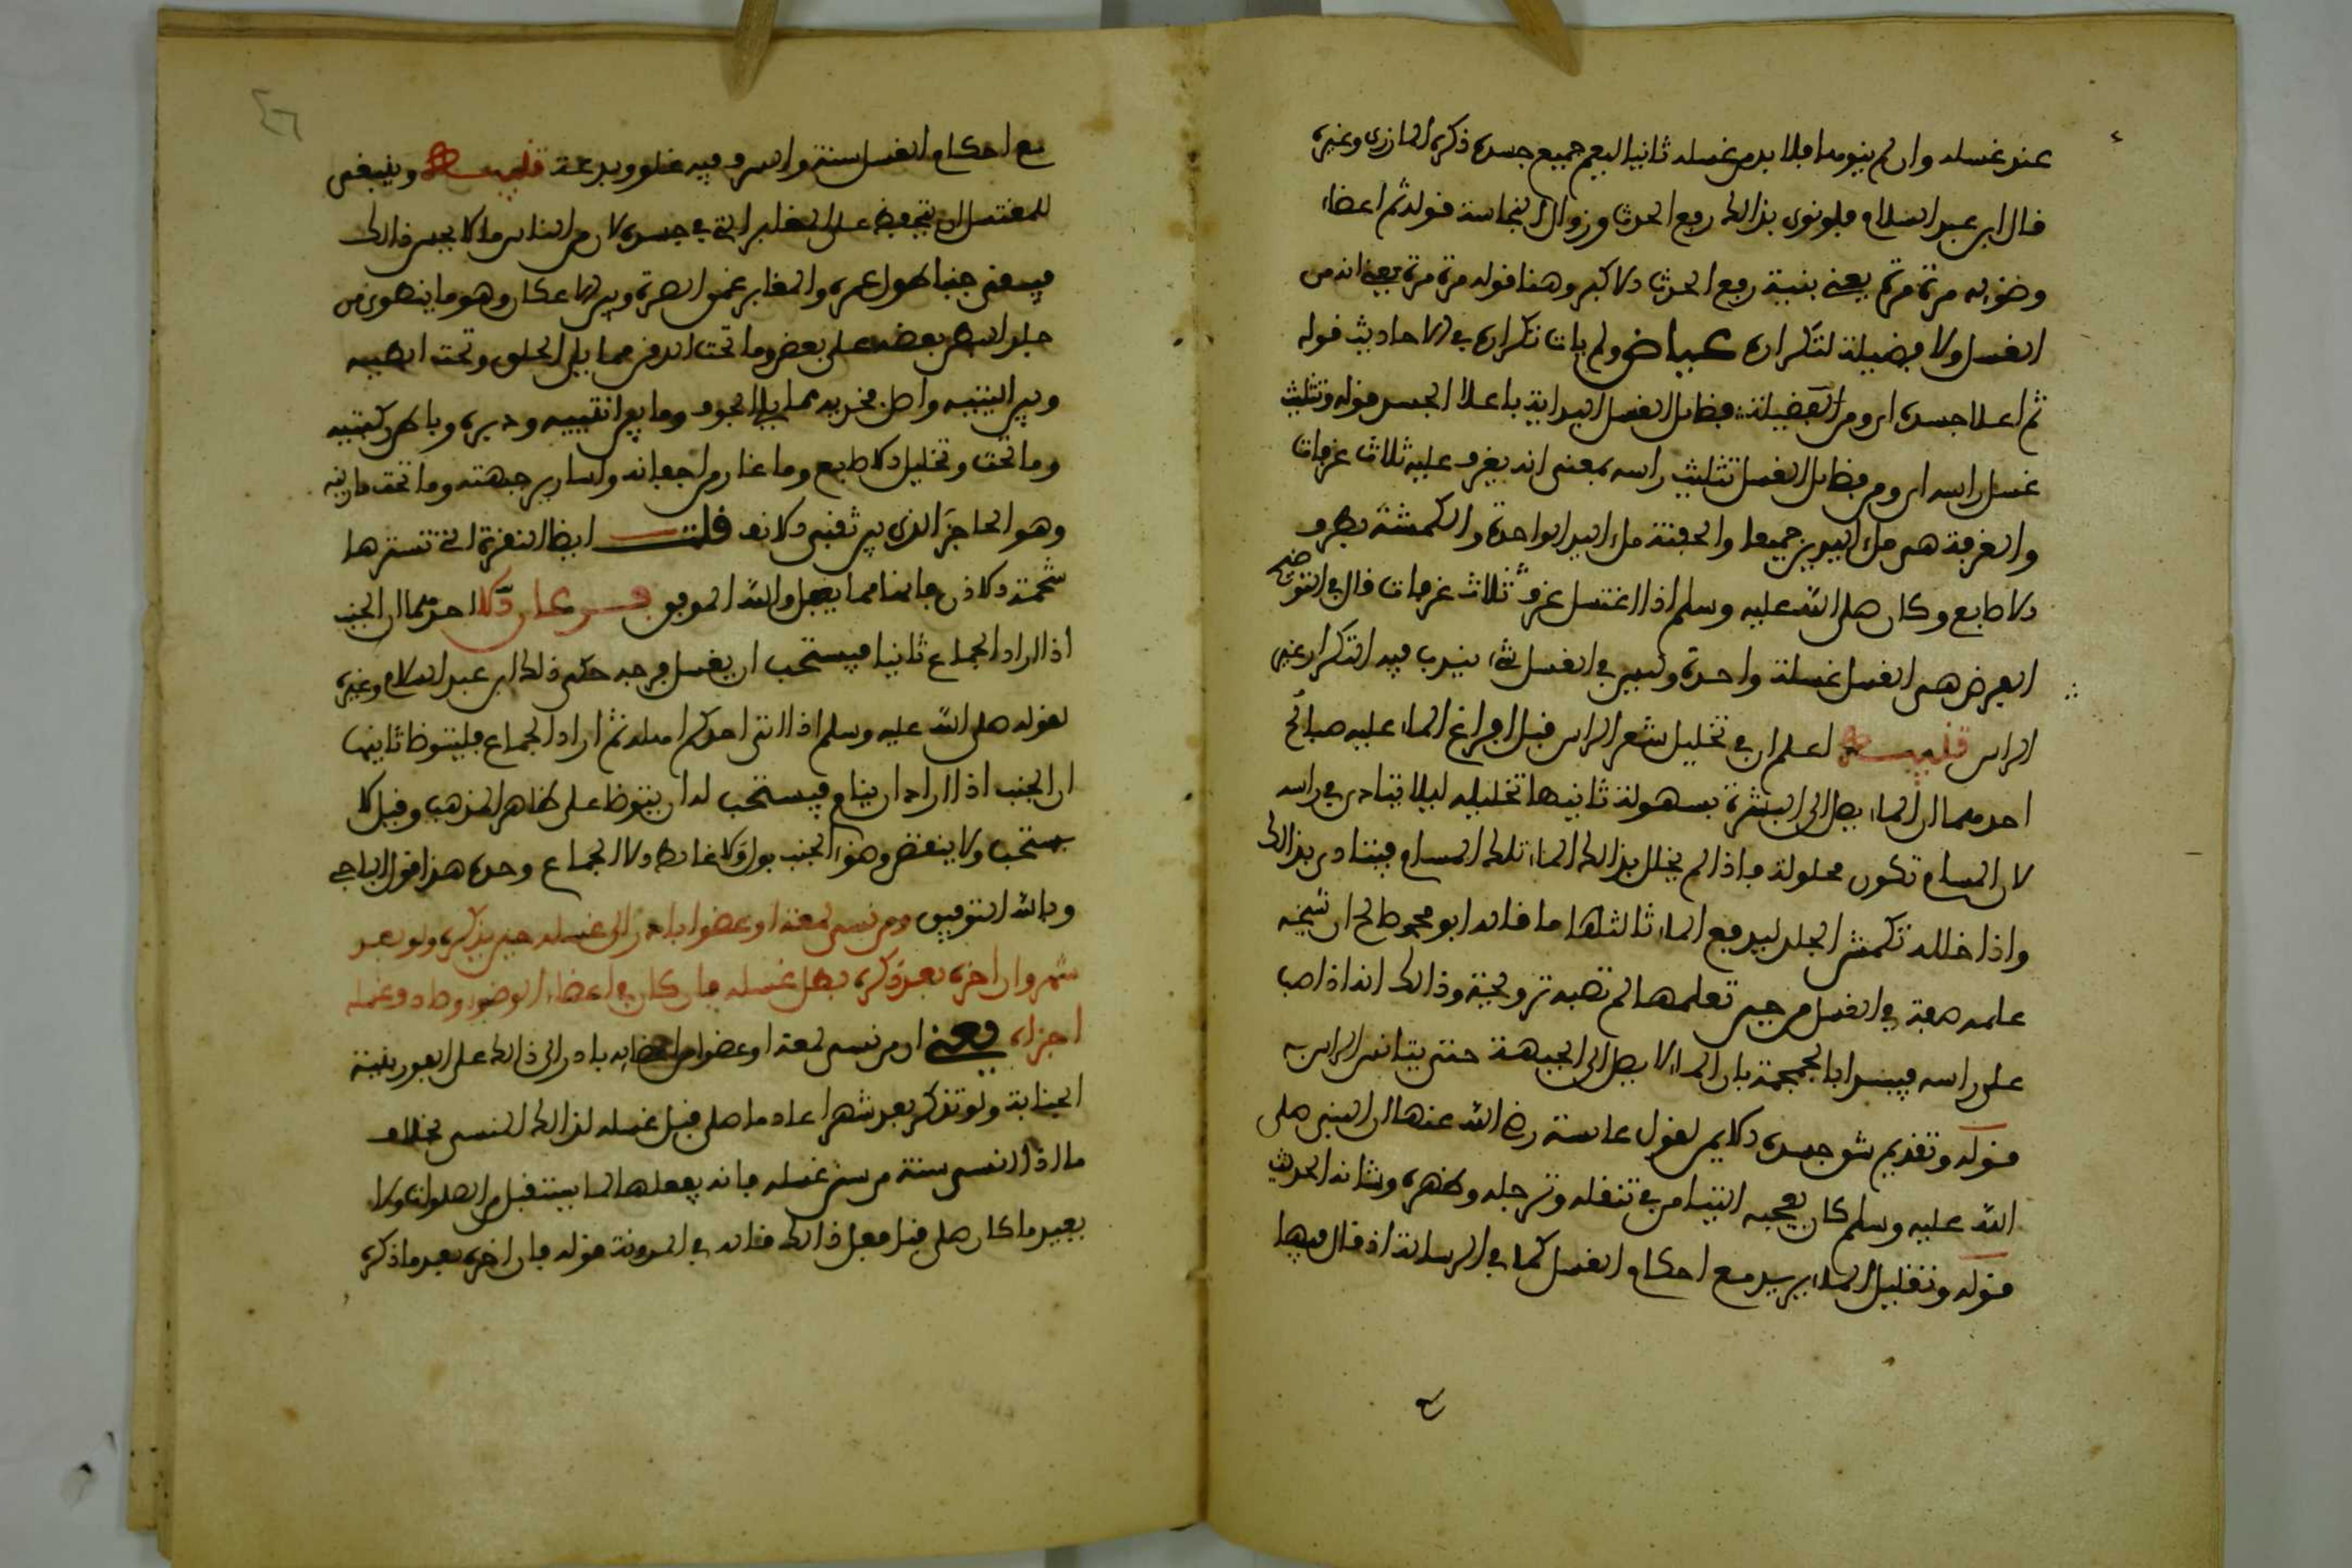 عند غسله وان لم ينوهما فلا بد من غسله ثانيا ليعم جميع جسده ذكره المازري وغيره
قال ابن عبد السلام فلو نوى بذالك رفع الحدث وزوال النجاسة قوله ثم اعضاء
وضوئه مرة مرة يعني بنية رفع الحدث الاكبر وهنا قوله مرة مرة يعني انه من
الغسل ولا فضيلة لتكراره عياض ولم يات تكراره في الاحاديث قوله
ثم اعلا جسده اي ومن الفضيلة فضايل الغسل البداية باعلا الجسد قوله وتثليث
غسل راسه اي ومن فضايل الغسل تثليث راسه بمعنى انه يغرف عليه ثلاث غرفات
والغرفة هي ملء اليدين جميعا والحفنة ملء اليد الواحدة والكمشة بطرف
الاصابع وكان صلى الله عليه وسلم اذا اغتسل غرف ثلاث غرفات قال في التوضيح
الفرض هي الغسل غسلة واحدة وليس في الغسل شيء يندب فيه التكرار غير
الراس تنبيه اعلم ان في تخليل شعر الراس قبل افراغ الماء عليه مصالح
احدهما ان الماء يصل الى البشرة بسهولة ثانيها تخليله ليلا يتاذى في راسه
لان المسام تكون محلولة فاذا لم يخلل بذالك الماء تلك المسام فيتاذى بذالك
واذا خلله تكمش الجلد ليدفع الماء ثالثها ما قاله ابو محمد صالح ان شيخه
علمه صفة في الغسل من حين تعلمها لم تصبه نزولية وذالك انه اذا صب
على راسه فيبدا بالجمجمة بان الماء لا يصل الى الجبهة حتى يتانس الراس به
قوله وتقديم شق جسده الايمن لقول عايشة رضي الله عنها ان النبي صلى
الله عليه وسلم كان يعجبه التيامن في تنعله وترجله وطهره وشانه الحديث
قوله وتقليل الماء يريد مع احكام الغسل كما في الرسالة اذ قال فيها
مع احكام الغسل سنة والسرف فيه غلو وبدعة تنبيه وينبغي
للمغتسل ان يتحفظ على المغابن التي في جسده لان من الناس من لا يحسن ذالك
فيبقى جنبا طول عمره والمغابن عمق السرة وبين الاعكان وهو ما ينطوي من
جلد البطن بعضه على بعض وما تحت الذقن مما يلي الحلق وتحت ابطيه
وبين اليتيه واصل فخذيه مما يلي الجوف وما بين انثييه ودبره وباطن ركبتيه
وما تحت وتخليل الاصابع وما غار من اجفانه واسارير جبهته وما تحت مارنه
وهو الحاجز الذي بين ثقبي الانف قلت ايضا النقرة التي تسترها
شحمة الاذن فانها مما يغفل والله الموفق فرعان الاول احدهما ان الجنب
اذا اراد الجماع ثانيا فيستحب ان يغسل فرجه حكى ذلك ابن عبد السلام وغيره
لقوله صلى الله عليه وسلم اذا اتى احدكم اهله ثم اراد الجماع فليتوضا ثانيهما
ان الجنب اذا اراد ان ينام فيستحب له ان يتوضا على ظاهر المذهب وقيل لا
يستحب ولا ينقض وضوء الجنب بول ولا غايط ولا الجماع وحده هذا قول الباجي
وبالله التوفيق ومن نسي لمعة او عضوا بادر الى غسله حين يذكره ولو بعد
شهر وان اخره بعد ذكره بطل غسله فان كان في اعضاء الوضوء وصادفه غسله
اجزاه يعني ان من نسي لمعة او عضوا من اعضايه بادر الى ذالك على الفور بنية
الجنابة ولو تذكر بعد شهر اعاد ما صلى قبل غسله لذالك المنسي بخلاف
ما اذا نسي سنة من سنن غسله فانه يفعلها لما يستقبل من الصلوات ولا
يعيد ما كان صلى قبل فعل ذالك قاله في المدونة قوله فان اخره بعد ما ذكره